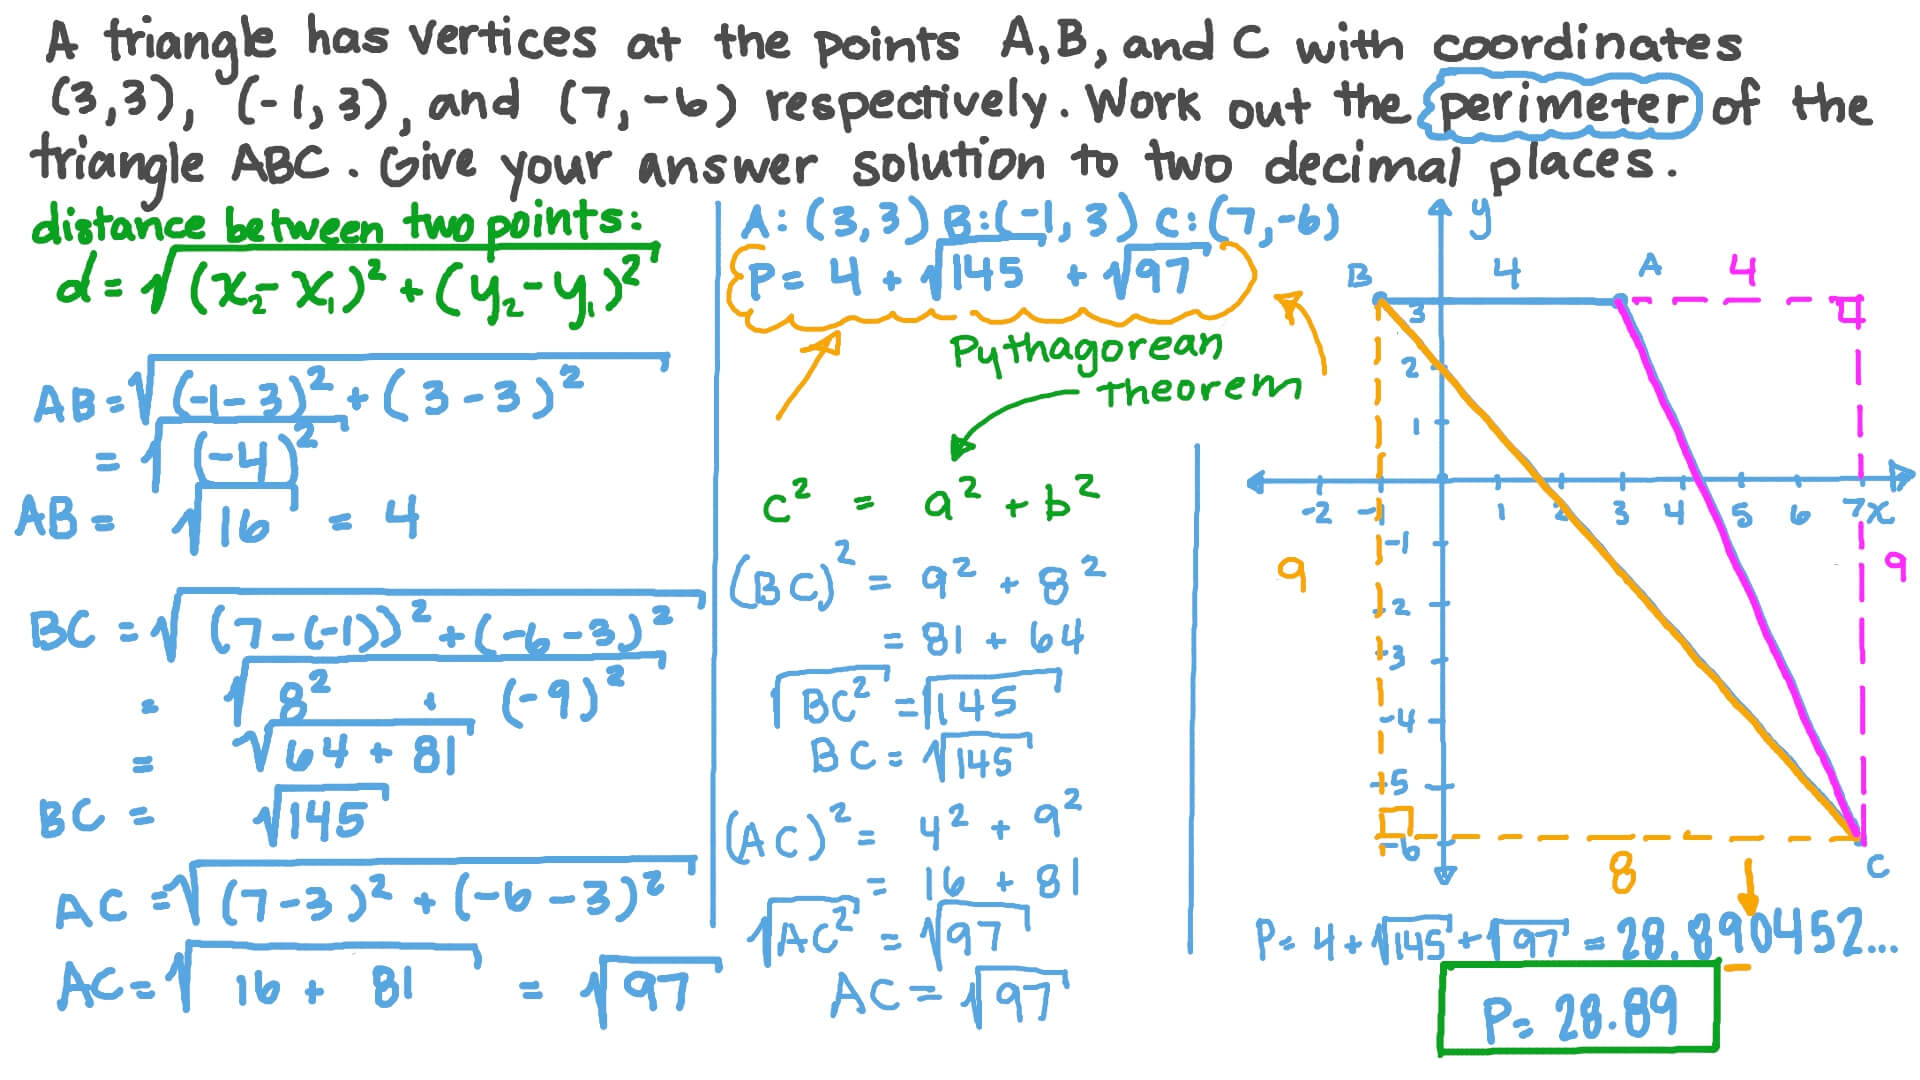 A triangle has vertices at the points A, B, and C with coordinates
(3,3), (-1,3), and (7,-6) respectively. Work out the perimeter of the
triangle ABC. Give your answer solution to two decimal places.
distance between two points:
d = √(x₂-x₁)² + (y₂-y₁)²
AB = √(-1-3)² + (3-3)²
= √(-4)²
AB = √16 = 4
BC = √(7-(-1))² + (-6-3)²
= √8² + (-9)²
= √64 + 81
BC = √145
AC = √(7-3)² + (-6-3)²
AC = √16 + 81 = √97
A: (3,3) B: (-1,3) C: (7,-6)
P = 4 + √145 + √97
Pythagorean
theorem
c² = a² + b²
(BC)² = 9² + 8²
= 81 + 64
√BC² = √145
BC = √145
(AC)² = 4² + 9²
= 16 + 81
√AC² = √97
AC = √97
y
B 4 A 4
3
2
1
-2 -1 1 2 3 4 5 6 7 x
-1
9 9
-2
-3
-4
-5
-6
8 C
P = 4 + √145 + √97 = 28.890452...
P = 28.89